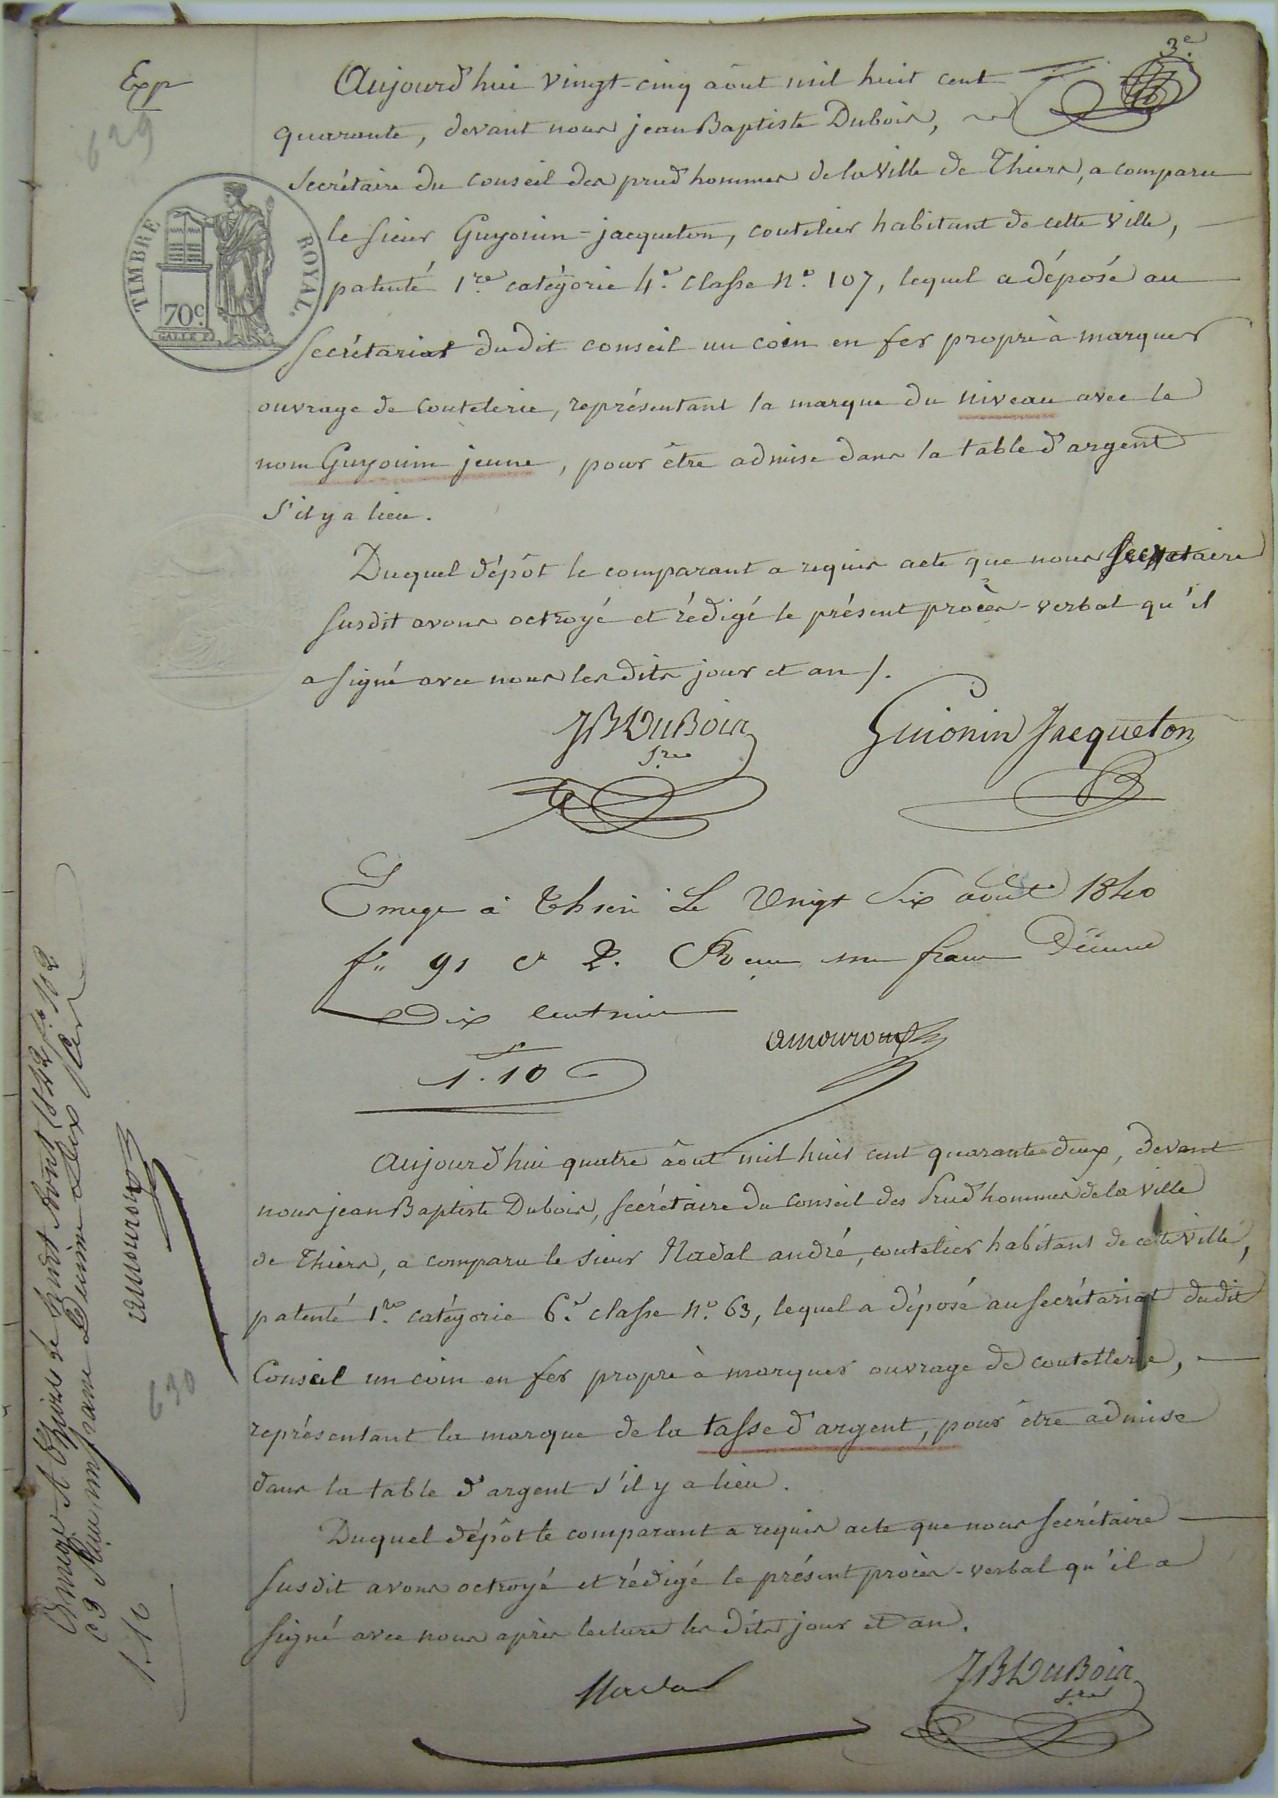 3e
Exp
629
Aujourd'hui vingt-cinq août mil huit cent
quarante, devant nous jean Baptiste Dubois,
Secrétaire du conseil des prud'hommes de la ville de Thiers, a comparu
le sieur Guyonin-jacqueton, coutelier habitant de cette ville,
patenté 1re catégorie 4e classe n° 107, lequel a déposé au
TIMBRE ROYAL.
70c
secrétariat dudit conseil un coin en fer propre à marquer
ouvrage de coutelerie, représentant la marque du niveau avec le
nom Guyonin jeune, pour être admise dans la table d'argent
s'il y a lieu.
Duquel dépôt le comparant a requis acte que nous secretaire
susdit avons octroyé et rédigé le présent procès-verbal qu'il
a signé avec nous les dits jour et an /.
JB DuBois
Sre
Guionin Jacqueton
à Le Vingt Six août 1840
f° 91 c 2. Reçu un franc Décime
Dix centimes
1.10
amouroux
Aujourd'hui quatre août mil huit cent quarante deux, devant
nous jean Baptiste Dubois, secrétaire du conseil des Prud'hommes de la ville
de Thiers, a comparu le sieur Nadal andré, coutelier habitant de cette ville,
patenté 1re catégorie 6e classe n° 63, lequel a déposé au secrétariat dudit
Conseil un coin en fer propre à marquer ouvrage de coutellerie,
630
représentant la marque de la tasse d'argent, pour être admise
dans la table d'argent s'il y a lieu.
Duquel dépôt le comparant a requis acte que nous secrétaire
susdit avons octroyé et rédigé le présent procès-verbal qu'il a
signé avec nous après lecture les dits jour et an.
Nadal
JB DuBois
Sre
A Thiers le Août 1842 f° 102
c 3 Reçu un franc Décime Dix
1.10
amouroux